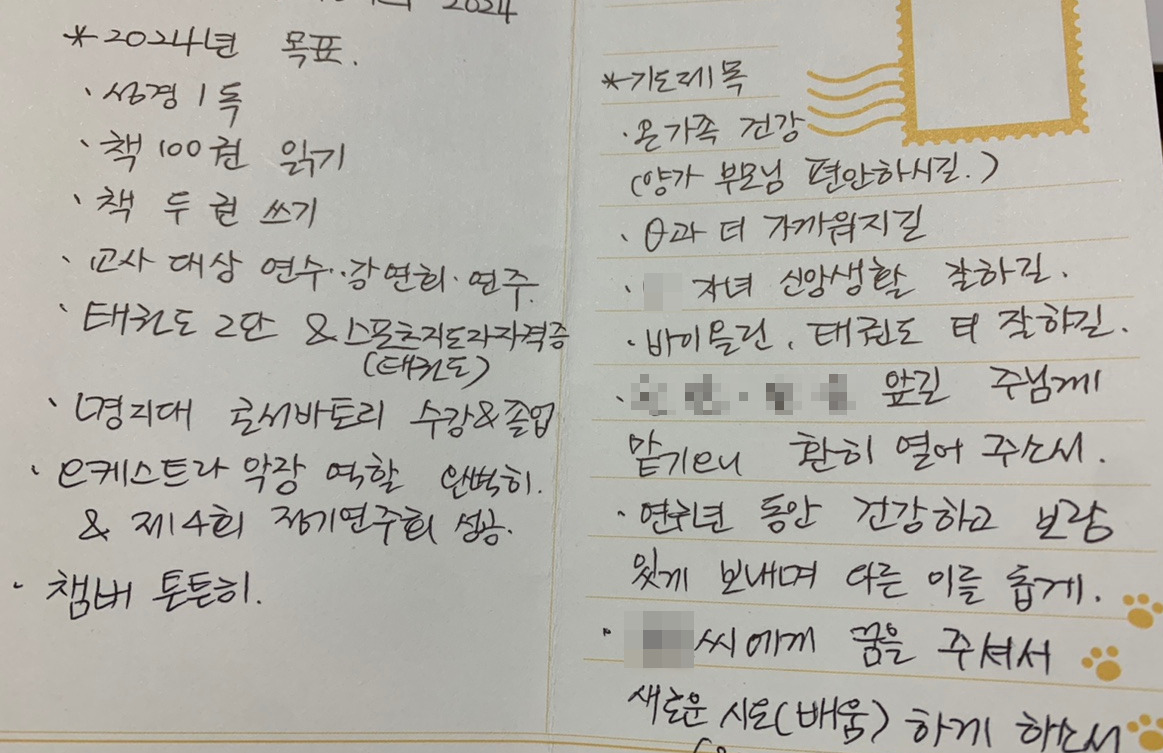 2024
*2024년 목표.
· 성경 1독
· 책 100권 읽기
· 책 두 권 쓰기
· 교사 대상 연수··강연회·연주.
· 태권도 2단 & 스포츠지도자자격증
(태권도)
· 명지대 콘서바토리 수강&졸업
· 오케스트라 악장 역할 완벽히.
& 제14회 정기연주회 성공.
· 챔버 튼튼히.
*기도제목
· 온가족 건강
(양가 부모님 편안하시길.)
· θ과 더 가까워지길
· 자녀 신앙생활 잘하길.
· 바이올린, 태권도 더 잘하길.
· 앞길 주님께
맡기오니 환히 열어 주소서.
· 연휴년 동안 건강하고 보람
있게 보내며 다른 이를 돕게.
· 씨에게 꿈을 주셔서
새로운 시도(배움) 하게 하소서